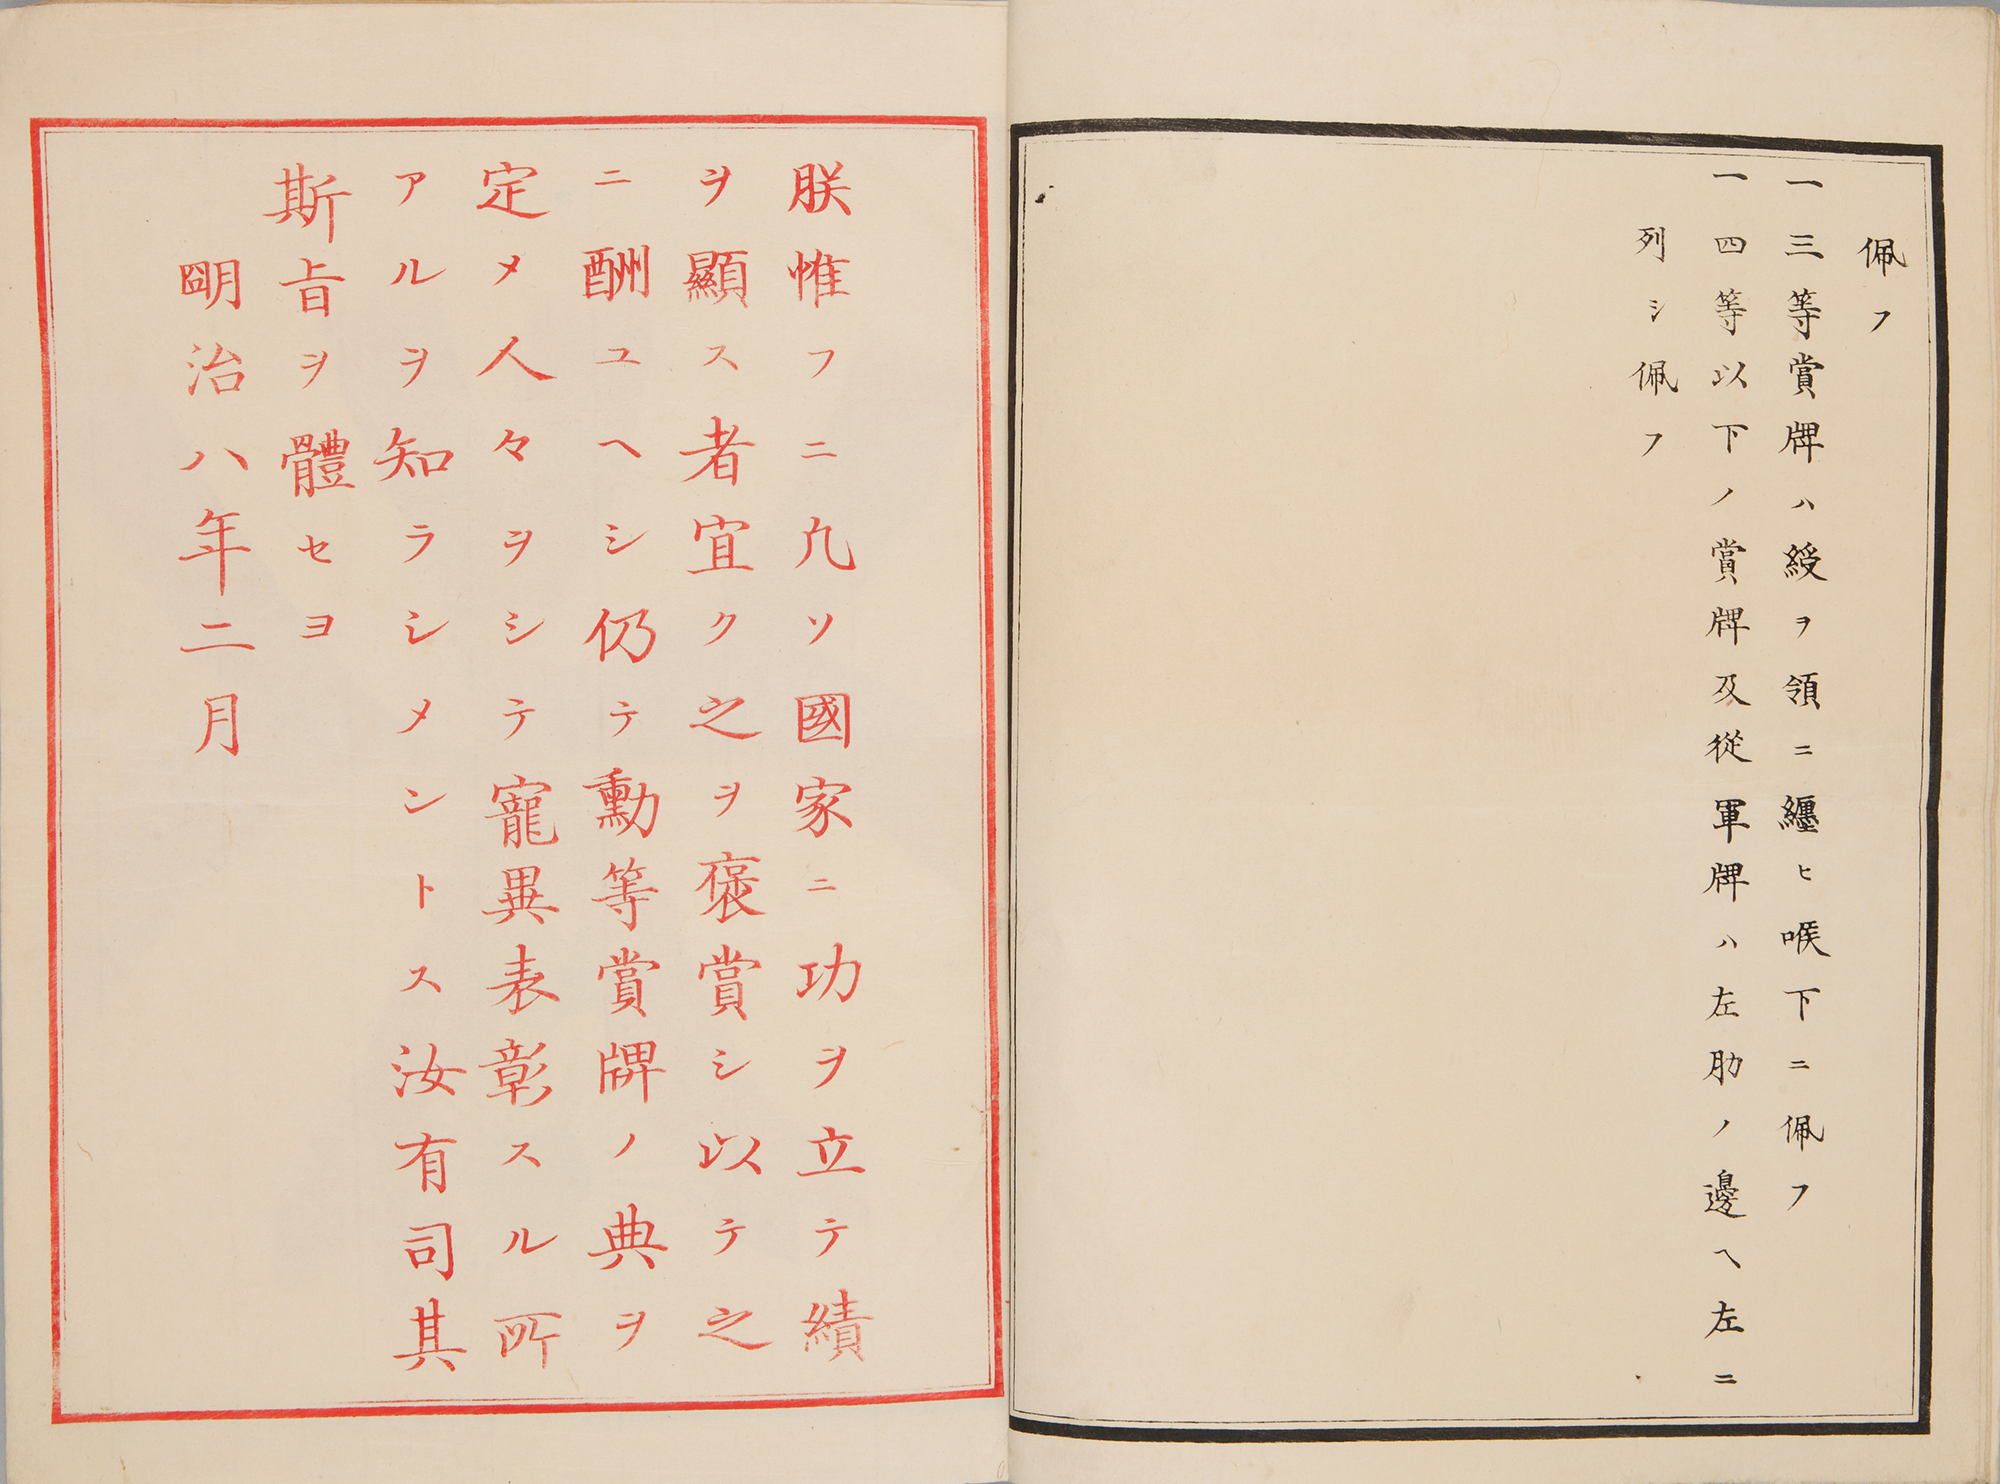 佩フ
一三等賞牌ハ綬ヲ領ニ纏ヒ喉下ニ佩フ
一四等以下ノ賞牌及從軍牌ハ左肋ノ邊ヘ左ニ
列シ佩フ
朕惟フニ凢ソ國家ニ功ヲ立テ績
ヲ顯ス者宜ク之ヲ褒賞シ以テ之
ニ酬ユヘシ仍テ勳等賞牌ノ典ヲ
定メ人々ヲシテ寵異表彰スル所
アルヲ知ラシメントス汝有司其
斯旨ヲ體セヨ
明治八年二月